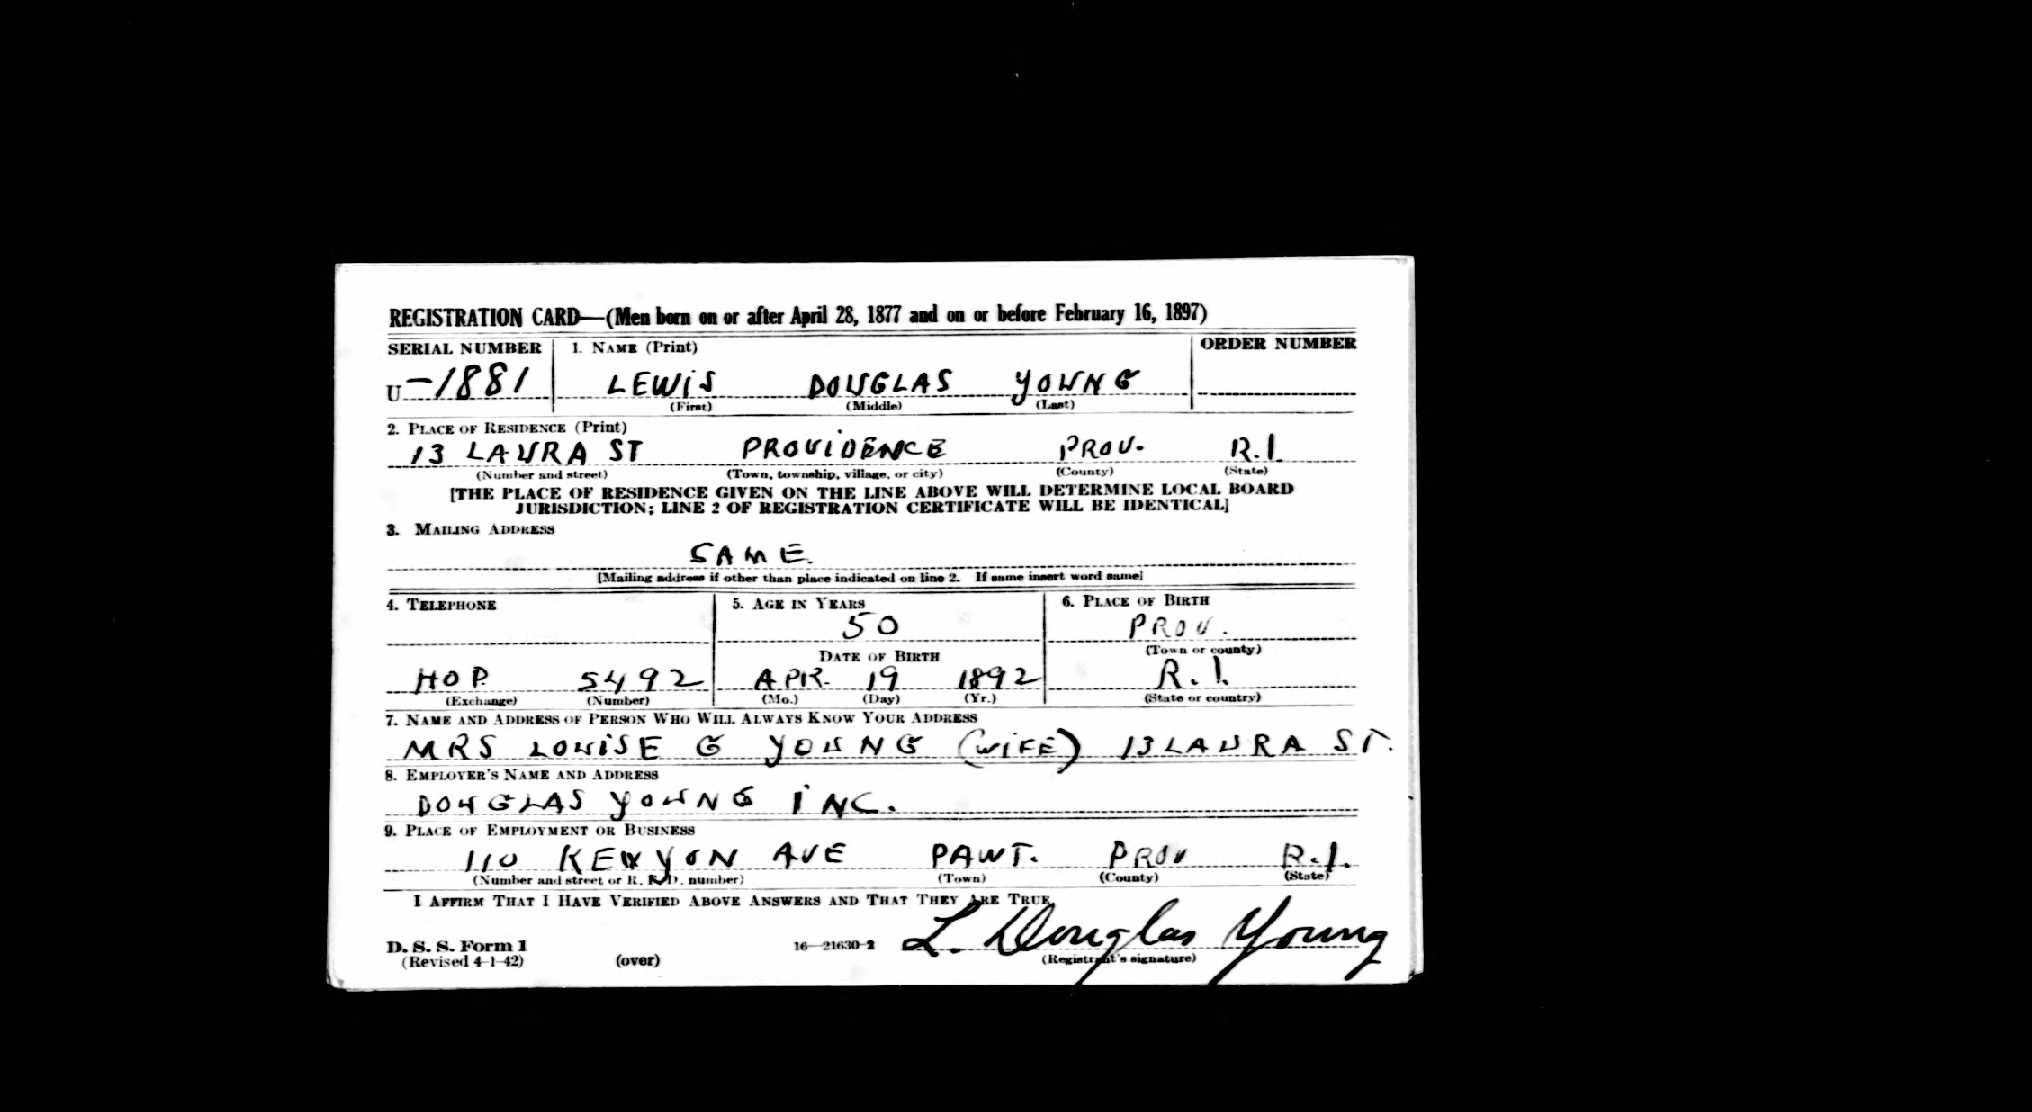 REGISTRATION CARD—(Men born on or after April 28, 1877 and on or before February 16, 1897)
SERIAL NUMBER 1. NAME (Print) ORDER NUMBER
U -1881 LEWIS DOUGLAS YOUNG
(First) (Middle) (Last)
2. PLACE OF RESIDENCE (Print)
13 LAURA ST PROVIDENCE PROV. R.I.
(Number and street) (Town, township, village, or city) (County) (State)
[THE PLACE OF RESIDENCE GIVEN ON THE LINE ABOVE WILL DETERMINE LOCAL BOARD
JURISDICTION; LINE 2 OF REGISTRATION CERTIFICATE WILL BE IDENTICAL]
3. MAILING ADDRESS
SAME
[Mailing address if other than place indicated on line 2. If same insert word same]
4. TELEPHONE 5. AGE IN YEARS 6. PLACE OF BIRTH
50 PROV.
DATE OF BIRTH (Town or county)
HOP. 5492 APR. 19 1892 R.I.
(Exchange) (Number) (Mo.) (Day) (Yr.) (State or country)
7. NAME AND ADDRESS OF PERSON WHO WILL ALWAYS KNOW YOUR ADDRESS
MRS LOUISE G YOUNG (WIFE) 13 LAURA ST.
8. EMPLOYER'S NAME AND ADDRESS
DOUGLAS YOUNG INC.
9. PLACE OF EMPLOYMENT OR BUSINESS
110 KENYON AVE PAWT. PROV R.I.
(Number and street or R. F. D. number) (Town) (County) (State)
I AFFIRM THAT I HAVE VERIFIED ABOVE ANSWERS AND THAT THEY ARE TRUE.
D. S. S. Form 1 16—21630-2 L. Douglas Young
(Revised 4-1-42) (over) (Registrant's signature)